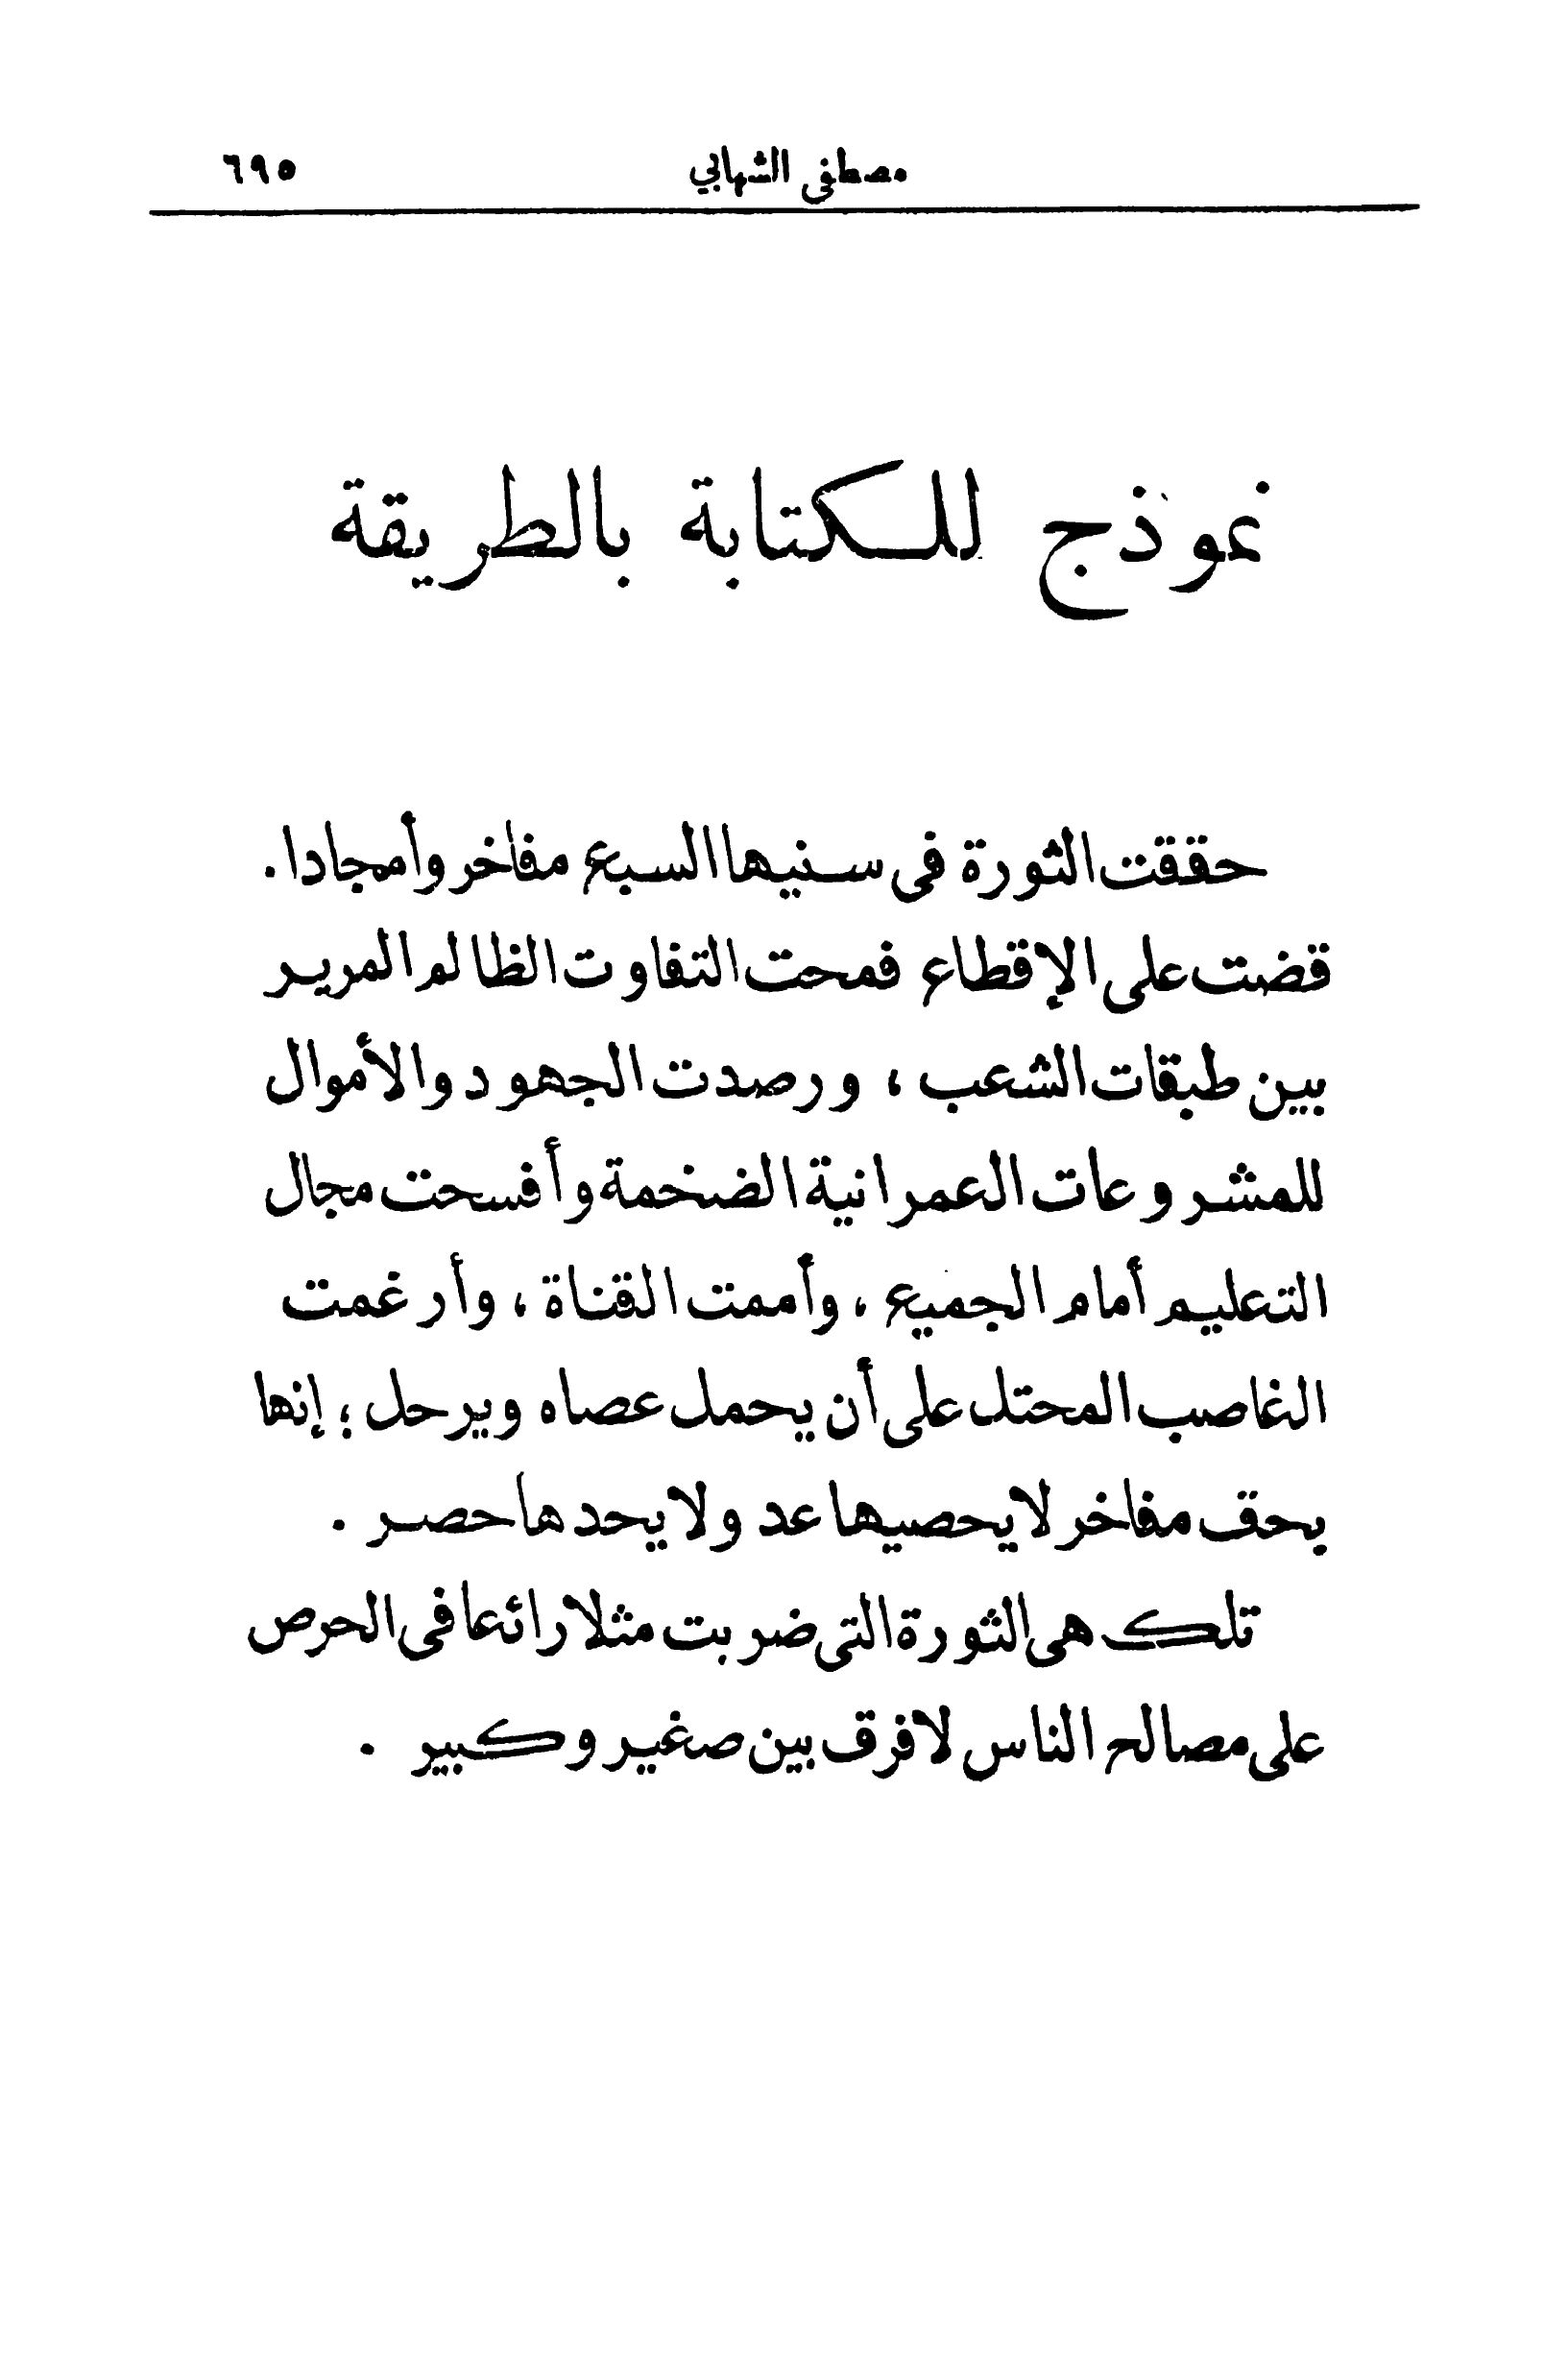 مصطفى الشهابي ٦٩٥
نموذج للكتابة بالطريقة
حققت الثورة فى سنيها السبع مفاخر وأمجادا .
قضت على الإقطاع فمحت التفاوت الظالم المرير
بين طبقات الشعب ، ورصدت الجهود والأموال
للمشروعات العمرانية الضخمة وأفسحت مجال
التعليم أمام الجميع ، وأممت القناة ، وأرغمت
الغاصب المحتل على أن يحمل عصاه ويرحل ؛ إنها
بحق مفاخر لا يحصيها عد ولا يحدها حصر .
تلك هى الثورة التى ضربت مثلا رائعا فى الحرص
على مصالح الناس لا فرق بين صغير وكبير .